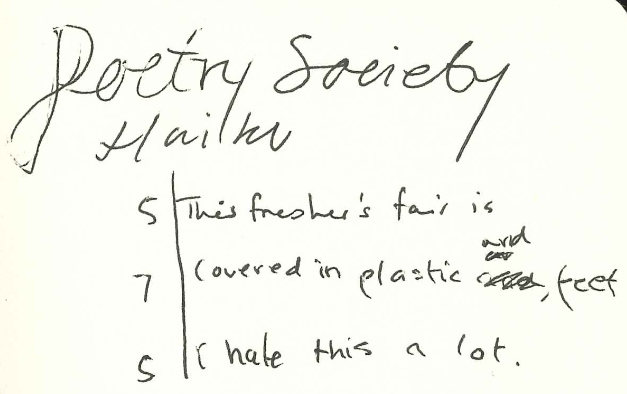 Poetry Society
Haiku
5 This fresher's fair is
and
7 Covered in plastic, feet
5 I hate this a lot.